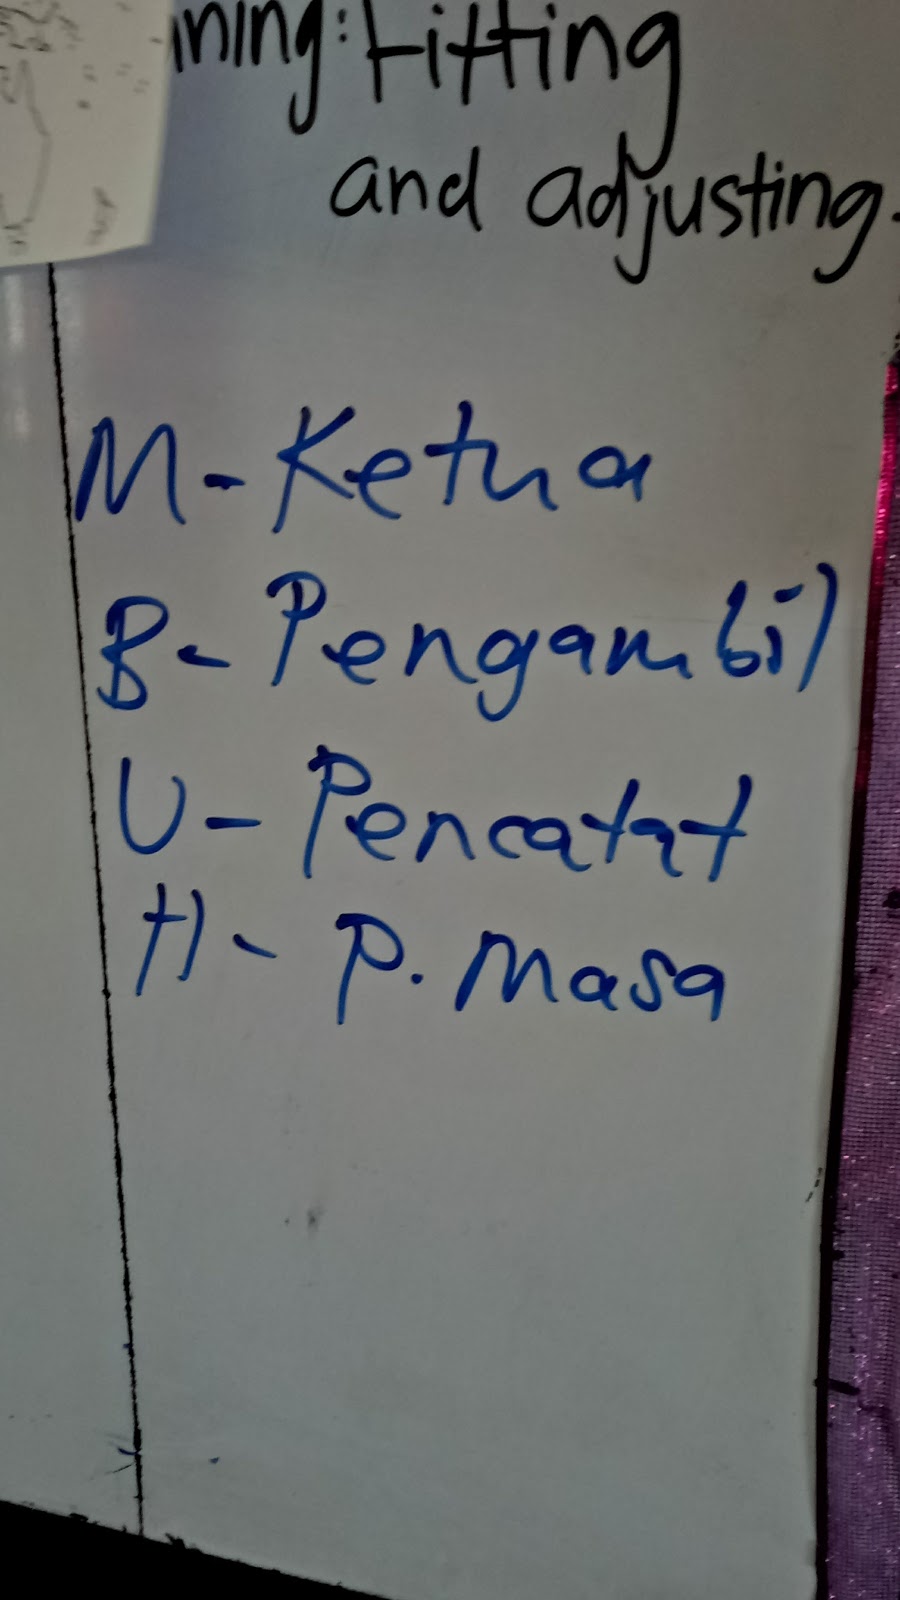 ining: Fitting
and adjusting.
M - Ketua
B - Pengambil
U - Pencatat
H - P. Masa